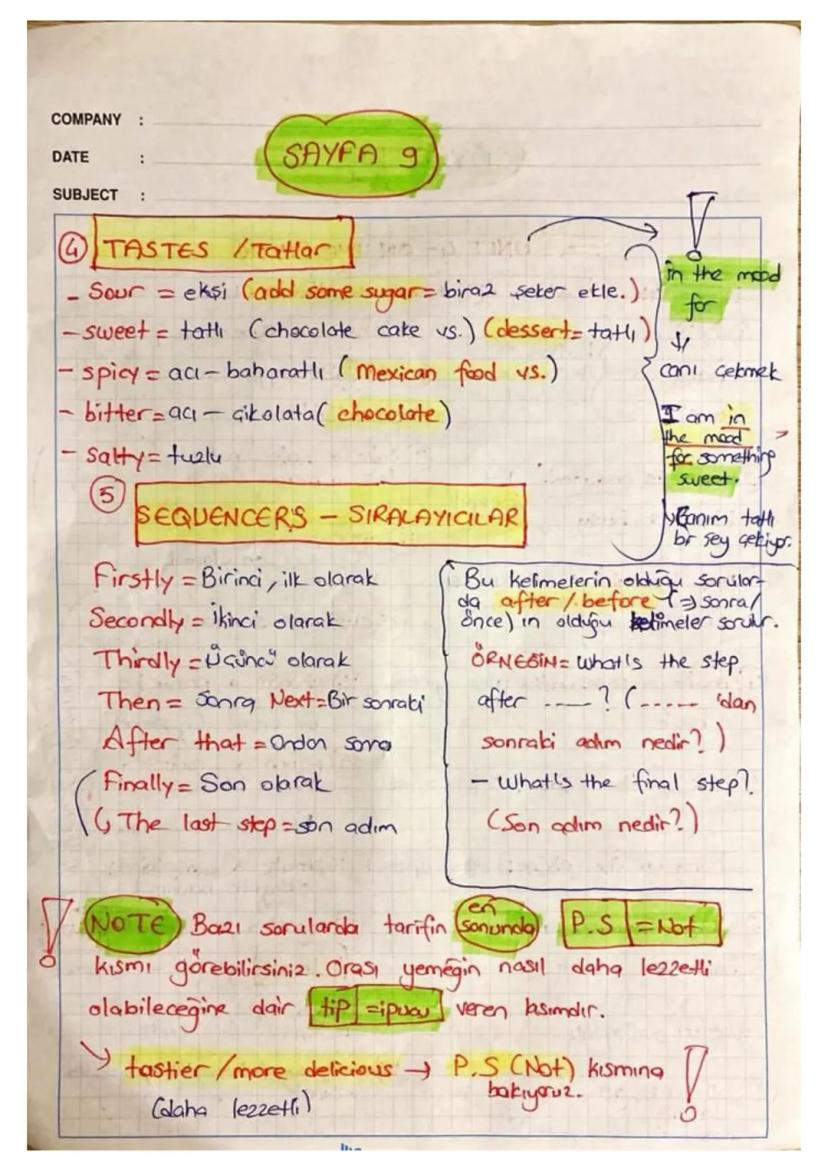 COMPANY :
DATE :
SUBJECT :
SAYFA 9
4 TASTES / Tatlar
- Sour = ekşi (add some sugar = biraz şeker ekle.)
- sweet = tatlı (chocolate cake vs.) (dessert = tatlı)
- spicy = acı - baharatlı (Mexican food vs.)
- bitter = acı - çikolata (chocolate)
- Salty = tuzlu
!
in the mood
for
↓
canı çekmek
I am in
the mood
for something
sweet.
Canım tatlı
bir şey çekiyor.
5 SEQUENCERS - SIRALAYICILAR
Firstly = Birinci, ilk olarak
Secondly = İkinci olarak
Thirdly = Üçüncü olarak
Then = Sonra Next = Bir sonraki
After that = Ondan sonra
Finally = Son olarak
↳ The last step = son adım
Bu kelimelerin olduğu sorular-
da after / before (⇒ sonra/
önce) in olduğu kelimeler sorulur.
ÖRNEĞİN = What's the step
after ----- ? (----- 'dan
sonraki adım nedir?)
- What's the final step?
(Son adım nedir?)
! NOTE Bazı sorularda tarifin en sonunda P.S = Not
kısmı görebilirsiniz. Orası yemeğin nasıl daha lezzetli
olabileceğine dair tip = ipucu veren kısımdır.
tastier / more delicious → P.S (Not) kısmına
bakıyoruz. !
(daha lezzetli)